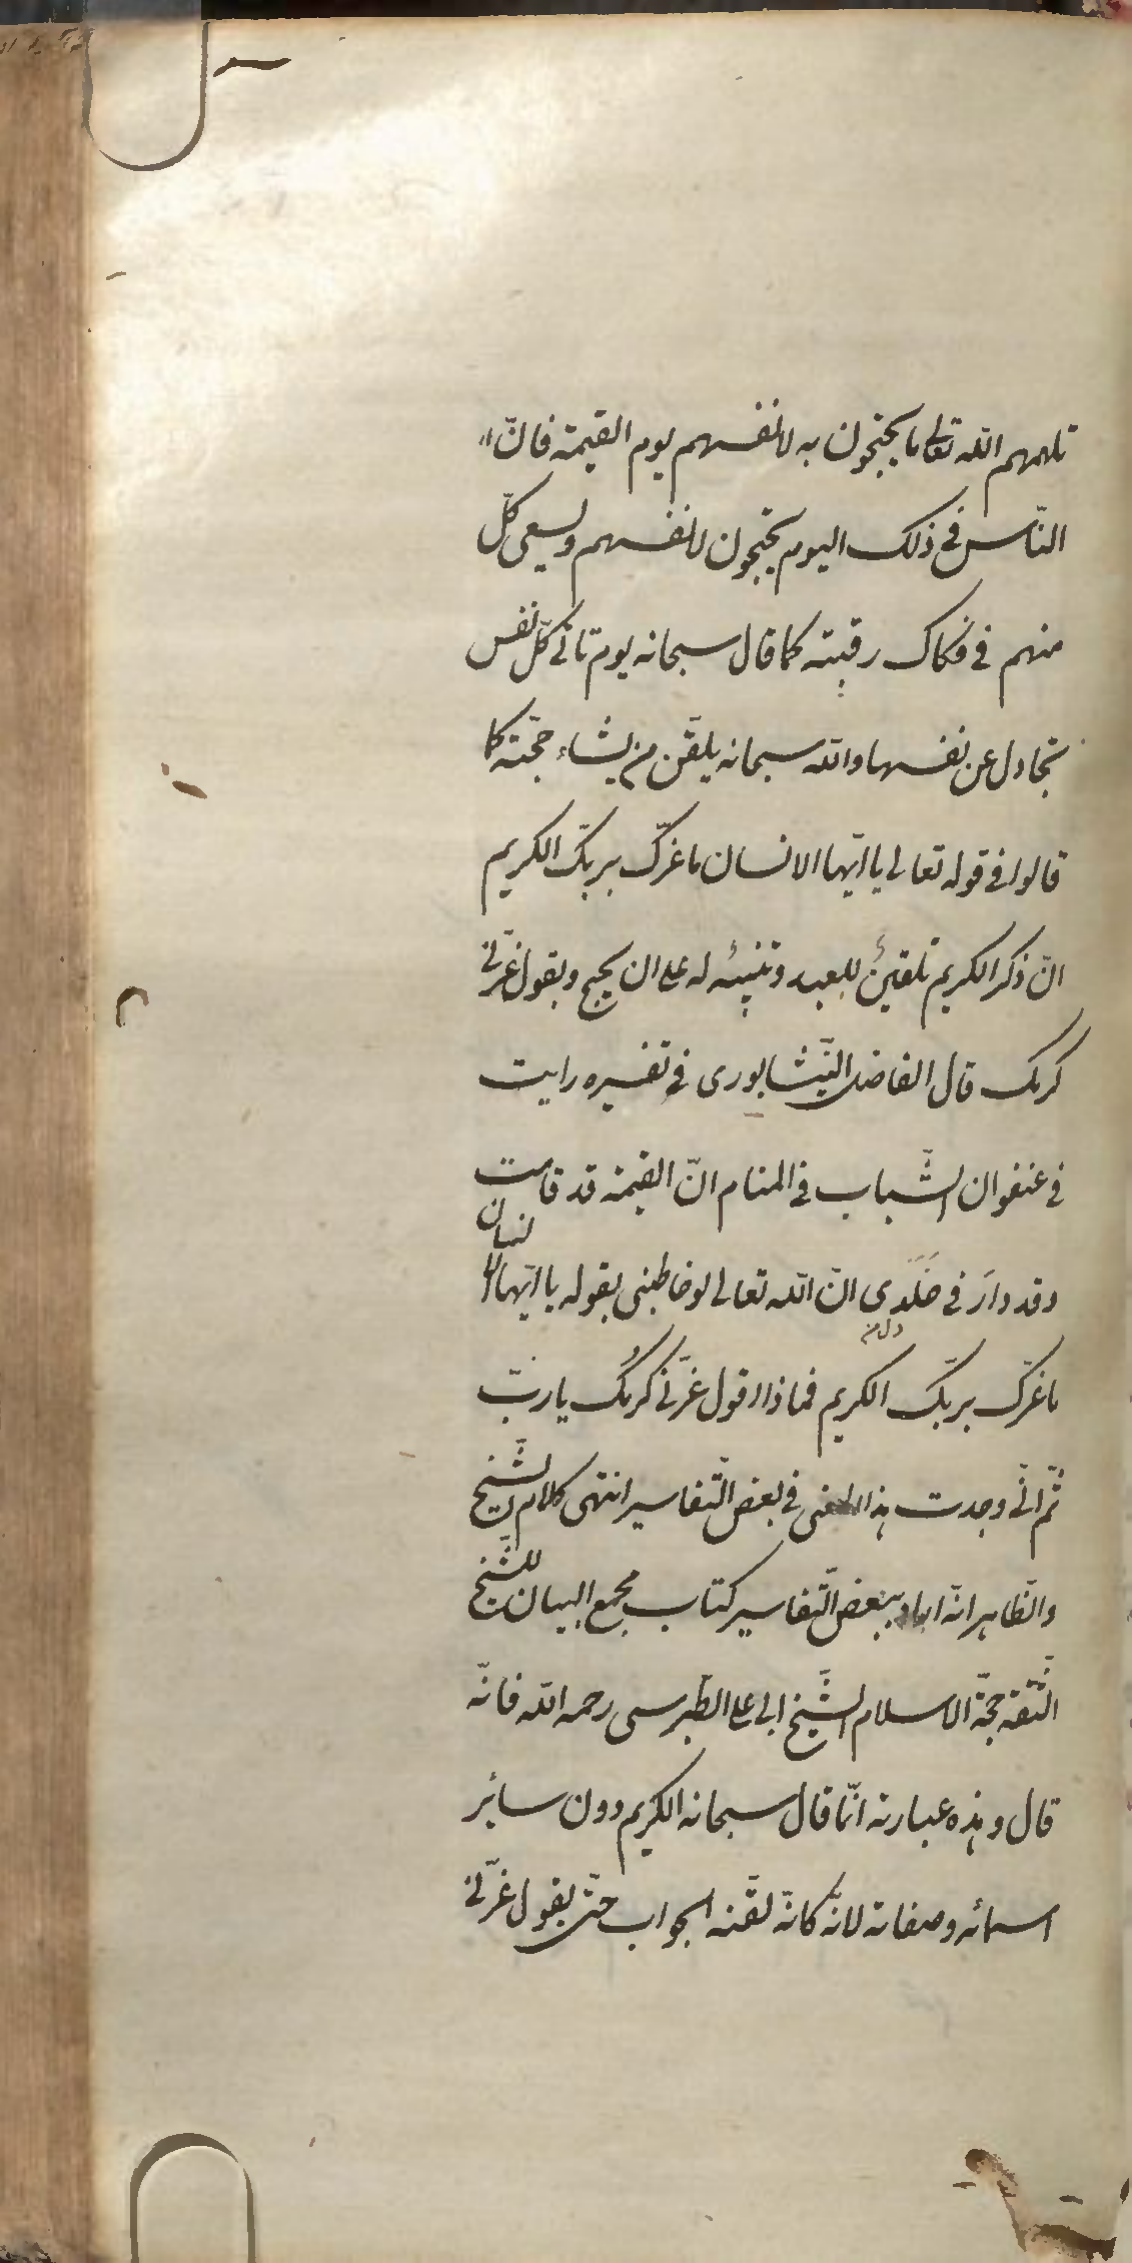 تلهمهم الله تعالى ما يحتجون به لانفسهم يوم القيمة فانّ
النّاس في ذلك اليوم يحتجون لانفسهم ويسعى كلّ
منهم في فكاك رقبته كما قال سبحانه يوم تأتي كلّ نفس
تجادل عن نفسها والله سبحانه يلقّن من يشاء حجّته كما
قالوا في قوله تعالى يا ايّها الانسان ما غرّك بربّك الكريم
انّ ذكر الكريم تلقينٌ للعبد وتنبيه له على ان يحتج ويقول غرّني
كرمك قال الفاضل النّيشابوري في تفسيره رايت
في عنفوان الشّباب في المنام انّ القيمة قد قامت
وقد دارَ في خَلَدي انّ الله تعالى لو خاطبني بقوله يا ايّها الانسان
ما غرّك بربّك الكريم فماذا اقول غرّني كرمُك يا ربّ
ثمّ انّي وجدت هذا المعنى في بعض التّفاسير انتهى كلام الشّيخ
والظّاهر انّه اراد ببعض التّفاسير كتاب مجمع البيان للشّيخ
الثّقة حجّة الاسلام الشّيخ ابي علي الطّبرسي رحمه الله فانّه
قال وهذه عبارته انّما قال سبحانه الكريم دون سائر
اسمائه وصفاته لانّه كانّه لقّنه الجواب حتّى يقول غرّني